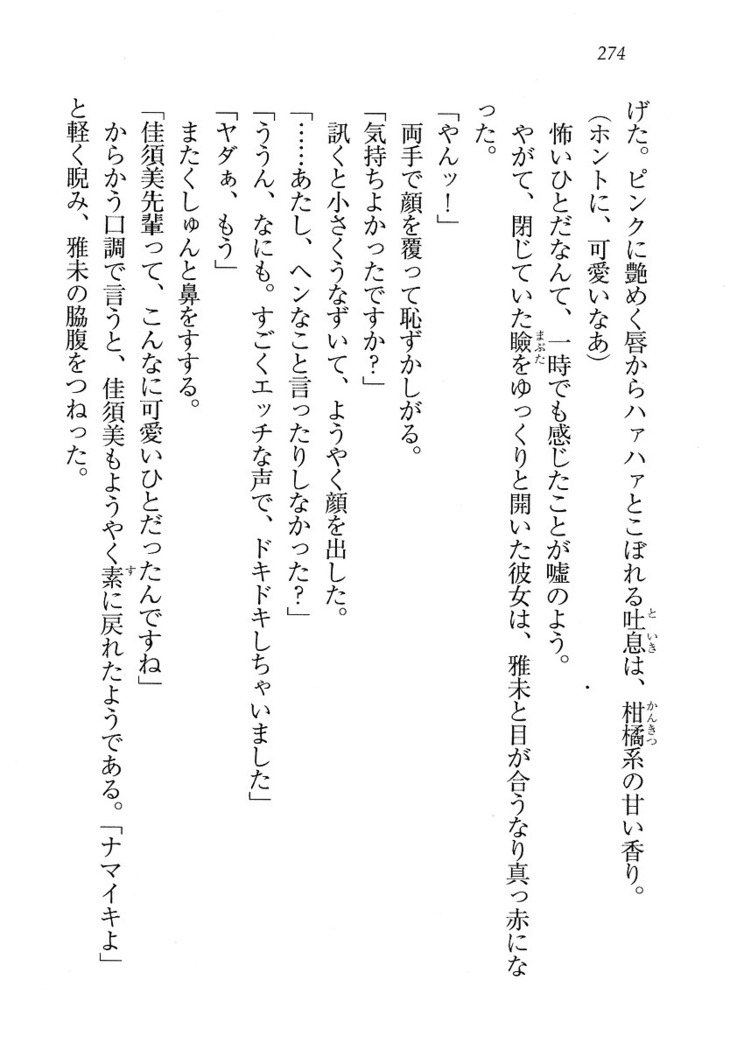 274
げた。ピンクに艶めく唇からハァハァとこぼれる吐息は、柑橘系の甘い香り。
(ホントに、可愛いなあ)
怖いひとだなんて、一時でも感じたことが嘘のよう。
やがて、閉じていた瞼をゆっくりと開いた彼女は、雅未と目が合うなり真っ赤にな
った。
「やんッ！」
両手で顔を覆って恥ずかしがる。
「気持ちよかったですか？」
訊くと小さくうなずいて、ようやく顔を出した。
「……あたし、ヘンなこと言ったりしなかった？」
「ううん、なにも。すごくエッチな声で、ドキドキしちゃいました」
「ヤダぁ、もう」
またくしゅんと鼻をすする。
「佳須美先輩って、こんなに可愛いひとだったんですね」
からかう口調で言うと、佳須美もようやく素に戻れたようである。「ナマイキよ」
と軽く睨み、雅未の脇腹をつねった。